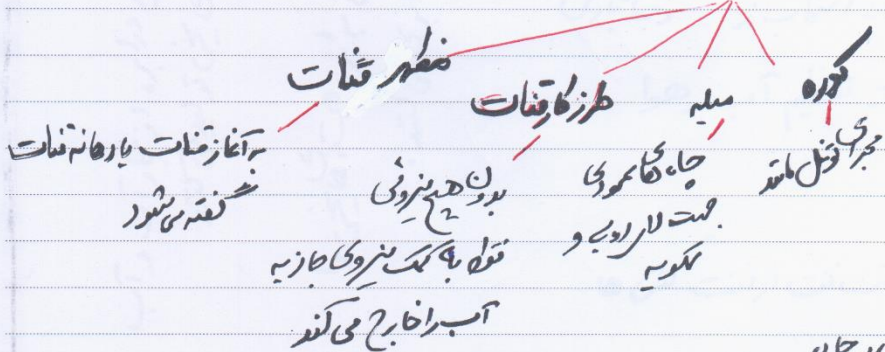 کوره
مجرای تونل مانند
میله
چاه‌های عمودی
جهت لای روبی و
تهویه
طرز کار قنات
بدون هیچ نیروئی
فقط به کمک نیروی جاذبه
آب را خارج می کند
مظهر قنات
به آغاز قنات یا دهانه قنات
گفته می شود